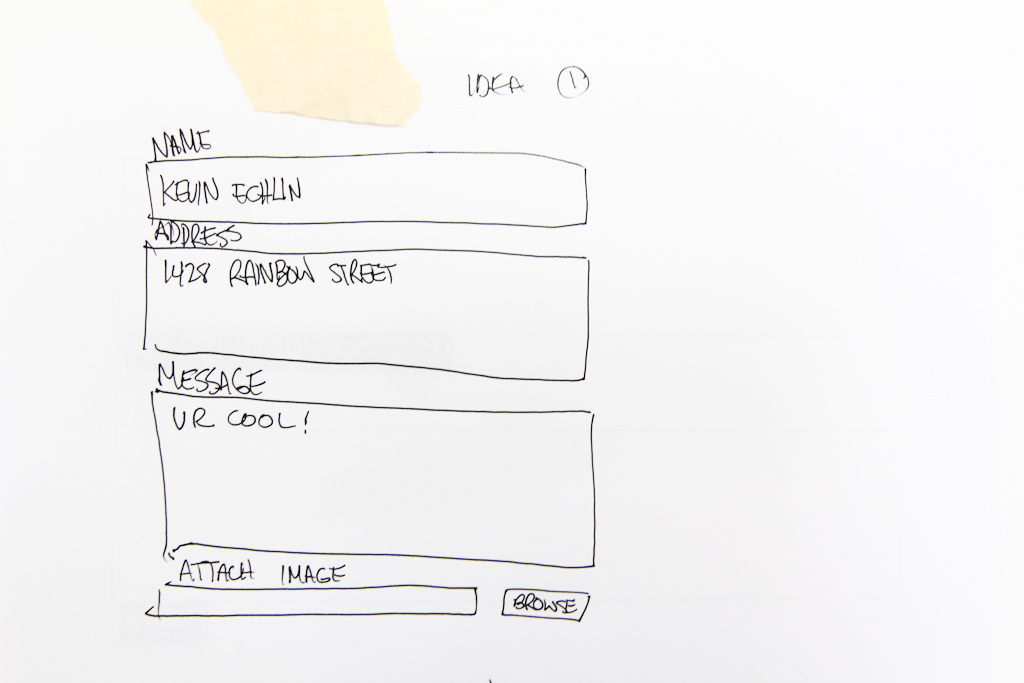 IDEA 1
NAME
KEVIN ECHLIN
ADDRESS
1428 RAINBOW STREET
MESSAGE
UR COOL!
ATTACH IMAGE
BROWSE